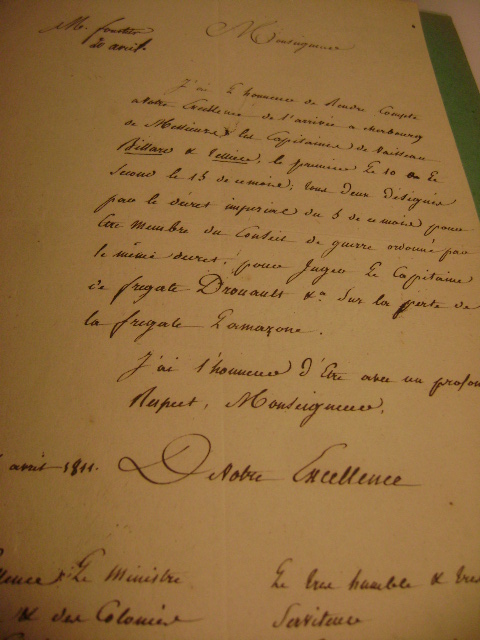 20 avril.
Monseigneur
J'ai l'honneur de Rendre Compte
a Votre Excellence de l'arrivée a Cherbourg
de Messieurs les Capitaines de Vaisseau
Billard & Vellue, le premier le 10 le
Second le 15 de ce mois; tous deux désignés
par le décret impérial du 5 de ce mois pour
être membre du Conseil de guerre ordonné par
le même décret; pour Juger le Capitaine
de frégate Drouault &a Sur la perte de
la frégate L'amazone.
J'ai l'honneur d'Etre avec un profon
Respect, Monseigneur,
avril 1811.
De Votre Excellence
llence Le Ministre
& des Colonies
Le très humble & très
Serviteur